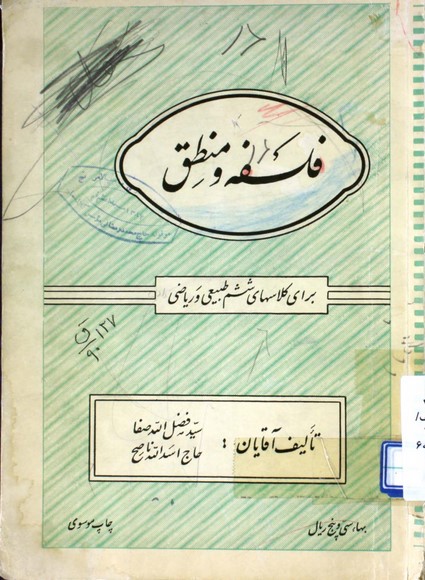 فلسفه و منطق
برای کلاسهای ششم طبیعی و ریاضی
۱۲۷
ق
۹۰
تألیف آقایان :
سید فضل الله صفا
حاج اسدالله ناصح
بها، سی و پنج ریال
چاپ موسوی